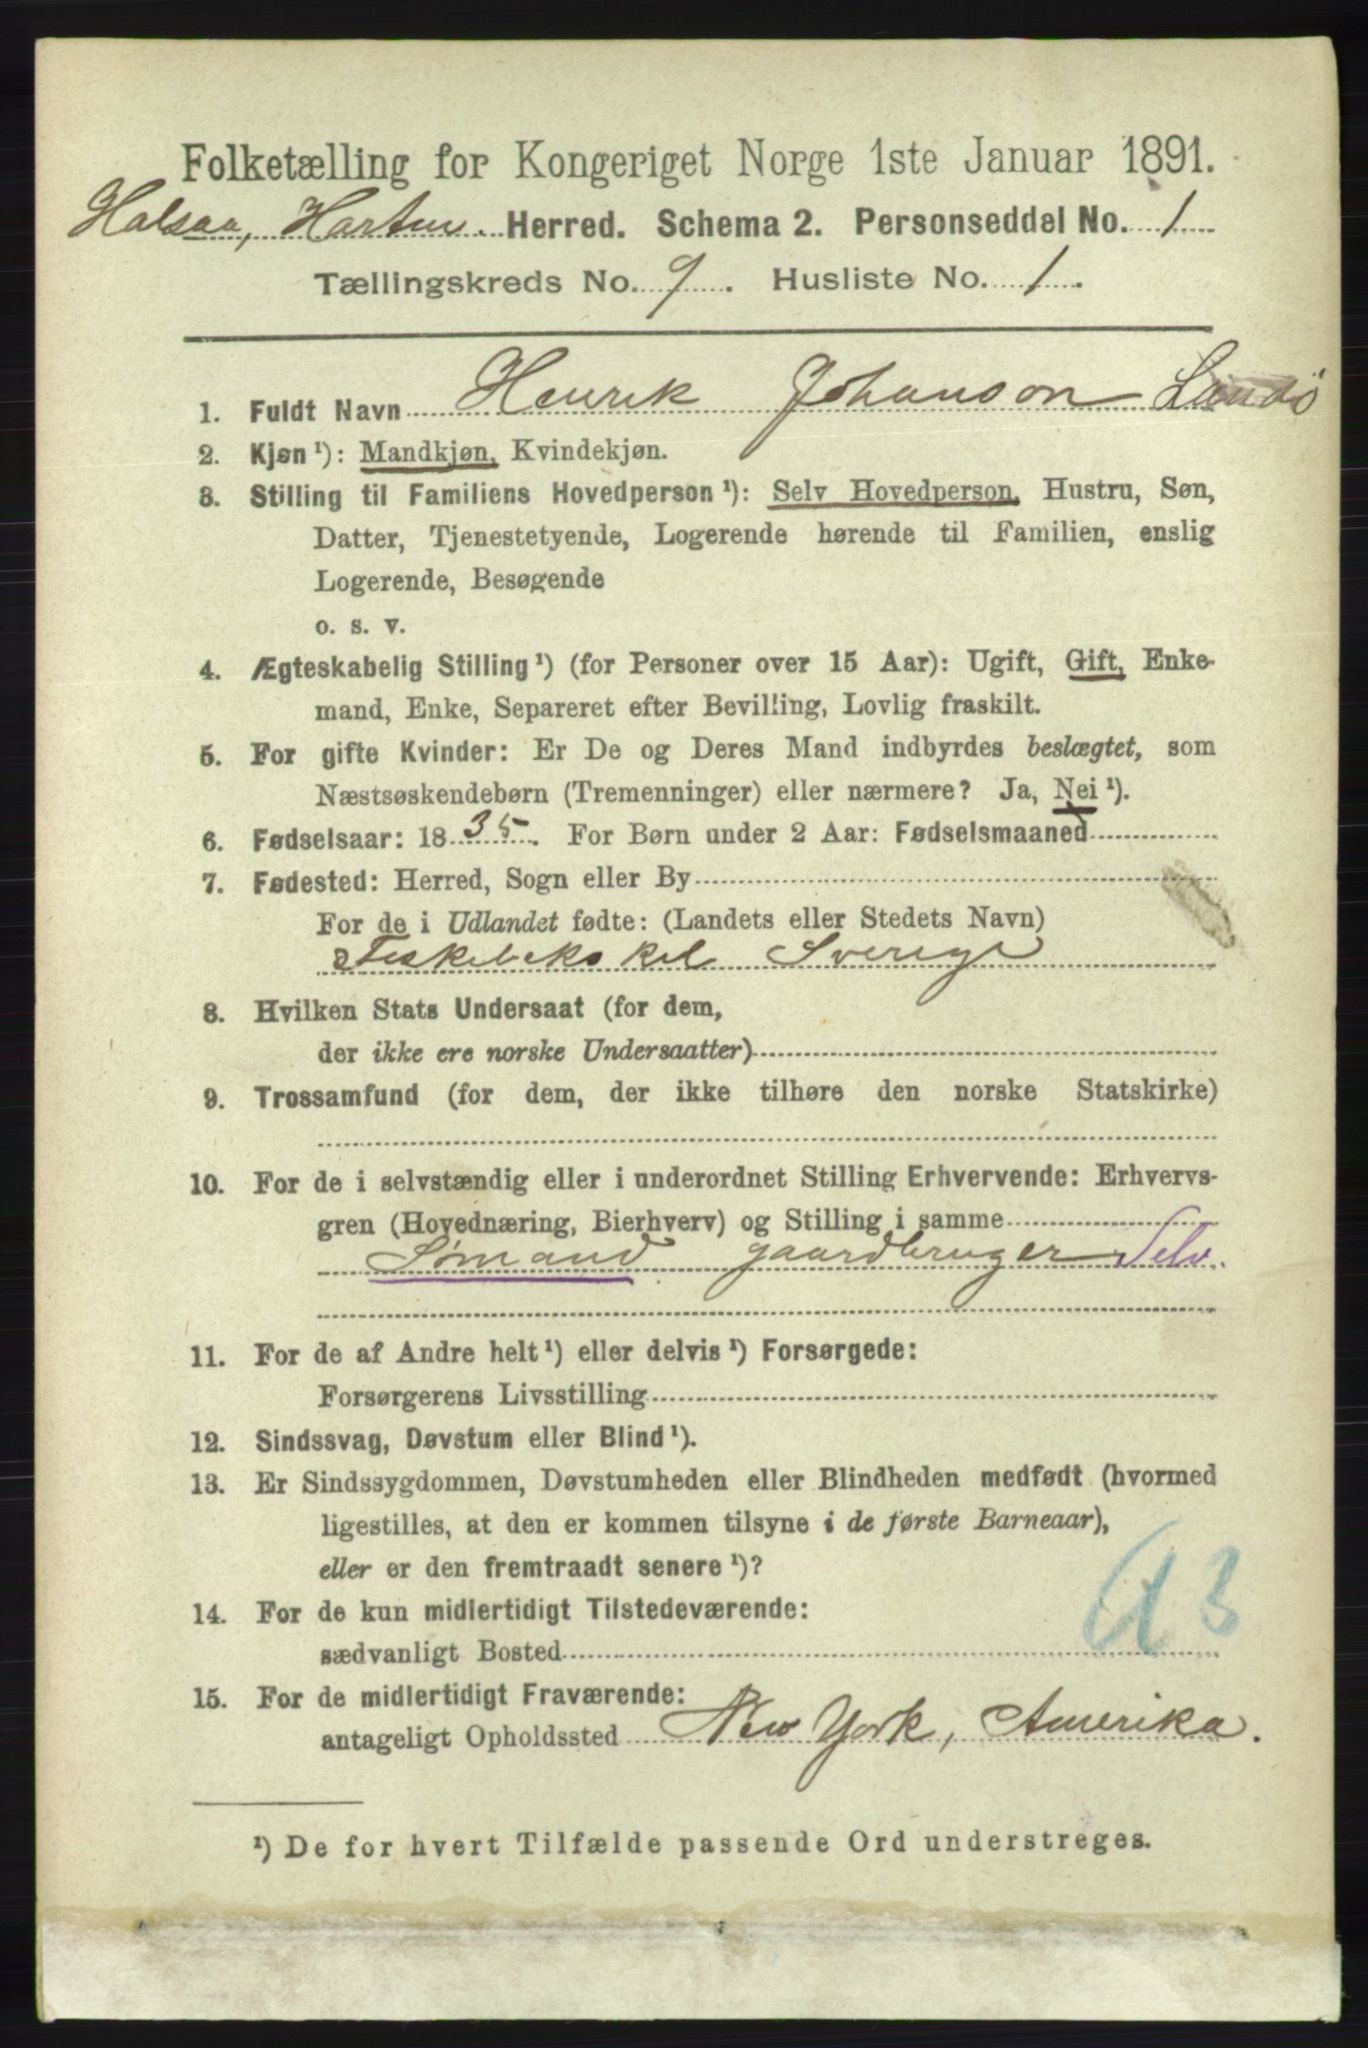 Folketælling for Kongeriget Norge 1ste Januar 1891.
Halsaa, Hartm. Herred. Schema 2. Personseddel No. 1
Tællingskreds No. 9. Husliste No. 1.
1. Fuldt Navn Henrik Johanson Landø
2. Kjøn ¹): Mandkjøn, Kvindekjøn.
3. Stilling til Familiens Hovedperson ¹): Selv Hovedperson, Hustru, Søn,
Datter, Tjenestetyende, Logerende hørende til Familien, enslig
Logerende, Besøgende
o. s. v.
4. Ægteskabelig Stilling ¹) (for Personer over 15 Aar): Ugift, Gift, Enke-
mand, Enke, Separeret efter Bevilling, Lovlig fraskilt.
5. For gifte Kvinder: Er De og Deres Mand indbyrdes beslægtet, som
Næstsøskendebørn (Tremenninger) eller nærmere? Ja, Nei ¹).
6. Fødselsaar: 1835. For Børn under 2 Aar: Fødselsmaaned
7. Fødested: Herred, Sogn eller By
For de i Udlandet fødte: (Landets eller Stedets Navn)
Sverige
8. Hvilken Stats Undersaat (for dem,
der ikke ere norske Undersaatter)
9. Trossamfund (for dem, der ikke tilhøre den norske Statskirke)
10. For de i selvstændig eller i underordnet Stilling Erhvervende: Erhvervs-
gren (Hovednæring, Bierhverv) og Stilling i samme
Sømand gaardbruger Selv.
11. For de af Andre helt ¹) eller delvis ¹) Forsørgede:
Forsørgerens Livsstilling
12. Sindssvag, Døvstum eller Blind ¹).
13. Er Sindssygdommen, Døvstumheden eller Blindheden medfødt (hvormed
ligestilles, at den er kommen tilsyne i de første Barneaar),
eller er den fremtraadt senere ¹)?
14. For de kun midlertidigt Tilstedeværende:
sædvanligt Bosted
15. For de midlertidigt Fraværende:
antageligt Opholdssted New York, Amerika.
¹) De for hvert Tilfælde passende Ord understreges.